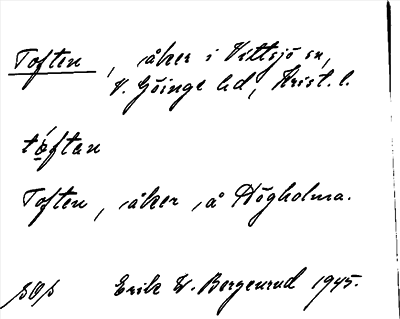 Toften, åker i Vittsjö sn,
V. Göinge hd, Krist. l.
tóftan
Toften, åker å Högholma.
Erik W. Bergenrud 1945.